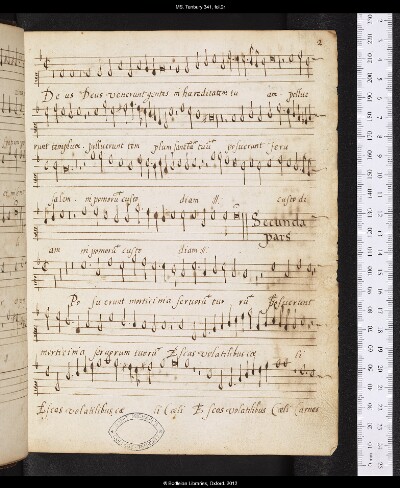 MS. Tenbury 341, fol.2r
2
De us Deus venerunt gentes in haereditatem tu am. polluc
runt templum. polluerunt tem plum sanctu tuu posuerunt Jeru
salem. in pomoru custo diam .ij. custo di
am in pomoru custo diam .ij.
Secunda
pars
Po su erunt morticinia servoru tuo ru Posuerunt
morticinia servorum tuoru Escas volatilibus cœ li
Escas volatilibus cœ li Cœli Escas volatilibus Cœli Carnes
© Bodleian Libraries, Oxford, 2012